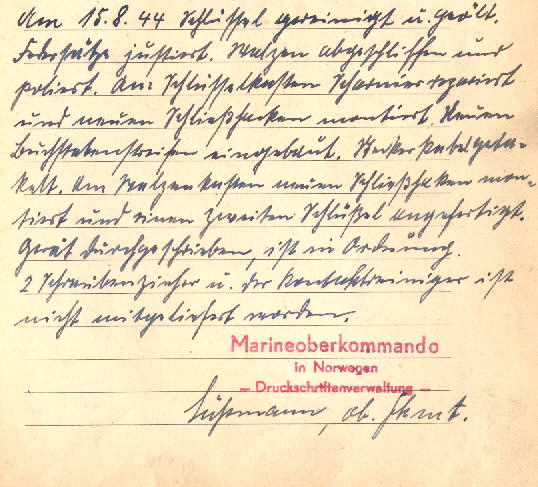 Am 15.8.44 Schlüssel gereinigt u. geölt.
Federsätze justiert. Walzen abgeschliffen und
poliert. Am Schlüsselkasten Scharnier repariert
und neuen Schließhaken montiert. Neuen
Buchstabenstreifen eingebaut. Steckerkabel geta-
kelt. Am Walzenkasten neuen Schließhaken mon-
tiert und einen zweiten Schlüßel angefertigt.
Gerät durchgeschrieben, ist in Ordnung.
2 Schraubenzieher u. der Kontaktreiniger ist
nicht mitgeliefert worden.
Marineoberkommando
in Norwegen
— Druckschriftenverwaltung —
ob.